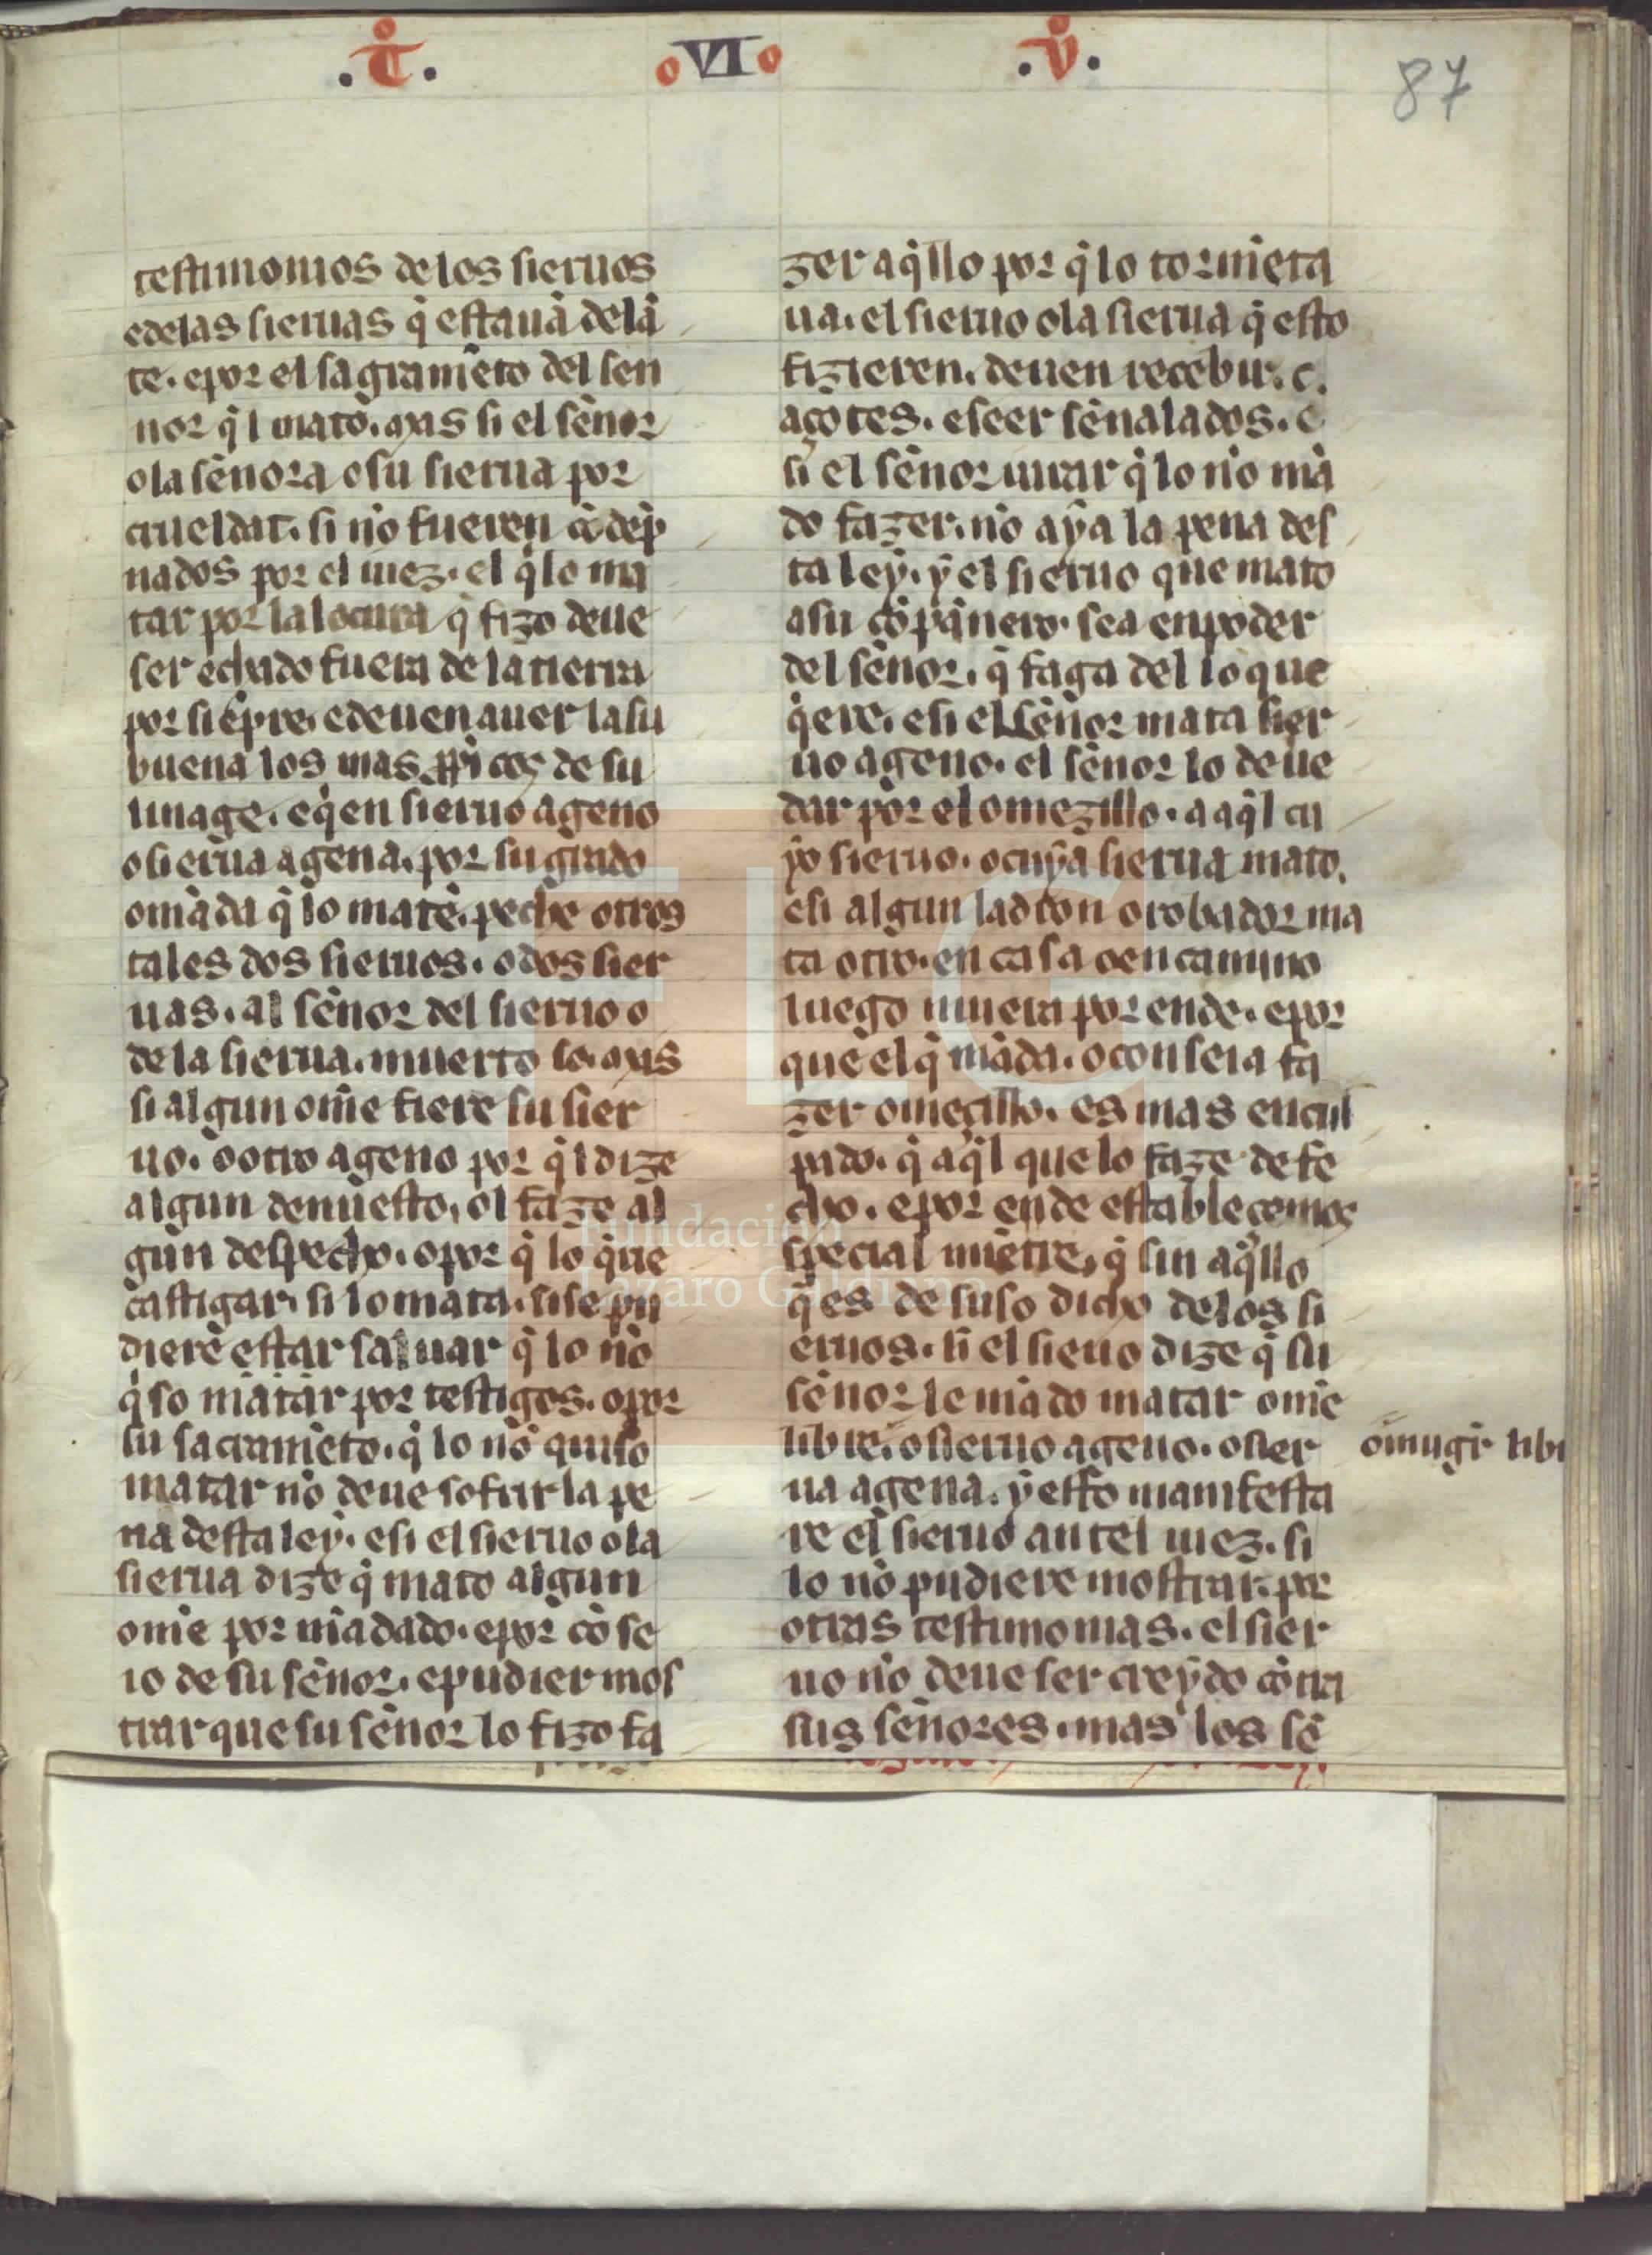 .t̊. o VI o .v̊.
87
testimonios delos sieruos
edelas sieruas q̇ estauā delā
te. epor el sagramēto del sen
nor q̇l mato. mas si el sēnor
ola sēnora osu sierua por
crueldat. si nō fueren cōdep
nados por el iuez. el q̇lo ma
tar por la locura q̇ fizo deue
ser echado fuera de la tierra
por siēpre. edeuen auer la su
buena los mas de su
linage. eq̇en sieruo ageno
osierua agena. por su grado
omāda q̇ lo matē. peche otros
tales dos sieruos. odos sier
uas. al sēnor del sieruo o
de la sierua. muerto so. mas
si algun om̄e fiere su sier
uo. ootro ageno por q̇l dize
algun denuesto, ol faze al
gun despecho. opor q̇ lo q̇ue
castigar. si lo mata. sise pu
dierē estar saluar q̇ lo nō
q̇so matar por testigos. opor
su sacramēto. q̇ lo nō quiso
matar nō deue sofrir la pe
na desta ley. esi el sieruo ola
sierua dize q̇ mato algun
om̄e por mādado. epor cōse
io de su sēnor. epudier mos
trar que su sēnor lo fizo fa
zer aq̇llo por q̇ lo tormēta
ua. el sieruo ola sierua q̇ esto
fizieren. deuen recebir. c.
açotes. eseer sēnalados. e
si el sēnor iurar q̇ lo nō mā
do fazer. nō aya la pena des
ta ley. y el sieruo que mato
asu cōpānero. sea enpoder
del sēnor. q̇ faga del lo que
q̇ere. esi el sēnor mata sier
uo ageno. el sēnor lo deue
dar por el omezillo. a aq̇l cu
yo sieruo. ocuya sierua mato.
esi algun ladron orobador ma
ta otro. en casa oen camino
luego muera por ende. epor
que el q̇ māda. oconseia fa
zer omecillo. es mas encul
pado. q̇ aq̇l que lo faze de fe
cho. epor ende establecemos
special miētre, q̇ sin aq̇llo
q̇ es de suso dicho delos si
eruos. si el sieuo dize q̇ su
sēnor le mādo matar om̄e
libre. osieruo ageno. osier
ua agena. y esto manifesta
re el sieruo antel iuez. si
lo nō pudiere mostrar. por
otras testimonias. el sier
uo nō deue ser creydo cōtra
sus sēnores. mas los sē
omugr̄ libr
Fundación
Lázaro Galdiano